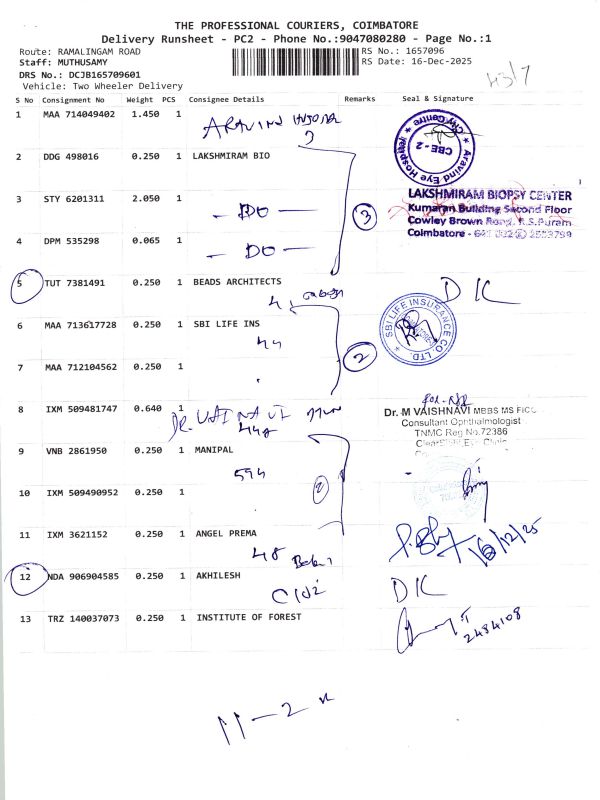 THE PROFESSIONAL COURIERS, COIMBATORE
Delivery Runsheet - PC2 - Phone No.:9047080280 - Page No.:1
Route: RAMALINGAM ROAD
RS No.: 1657096
Staff: MUTHUSAMY
RS Date: 16-Dec-2025
DRS No.: DCJB165709601
Vehicle: Two Wheeler Delivery
43/7
S No Consignment No Weight PCS Consignee Details Remarks Seal & Signature
1 MAA 714049402 1.450 1
CBE - 2
Aravind Eye Hospital
City Centre
2 DDG 498016 0.250 1 LAKSHMIRAM BIO
3 STY 6201311 2.050 1
- DO -
3
LAKSHMIRAM BIOPSY CENTER
Kumaran Building Second Floor
Cowley Brown Road, R.S.Puram
Coimbatore - 641 002
4 DPM 535298 0.065 1
- DO -
5 TUT 7381491 0.250 1 BEADS ARCHITECTS
DK
6 MAA 713617728 0.250 1 SBI LIFE INS
44
2
SBI LIFE INSURANCE CO. LTD.
7 MAA 712104562 0.250 1
8 IXM 509481747 0.640 1
Dr. M VAISHNAVI MBBS MS FICO
Consultant Ophthalmologist
TNMC Reg No.72386
9 VNB 2861950 0.250 1 MANIPAL
594
10 IXM 509490952 0.250 1
2
11 IXM 3621152 0.250 1 ANGEL PREMA
48
16/12/25
12 NDA 906904585 0.250 1 AKHILESH
DK
13 TRZ 140037073 0.250 1 INSTITUTE OF FOREST
2484108
11-2